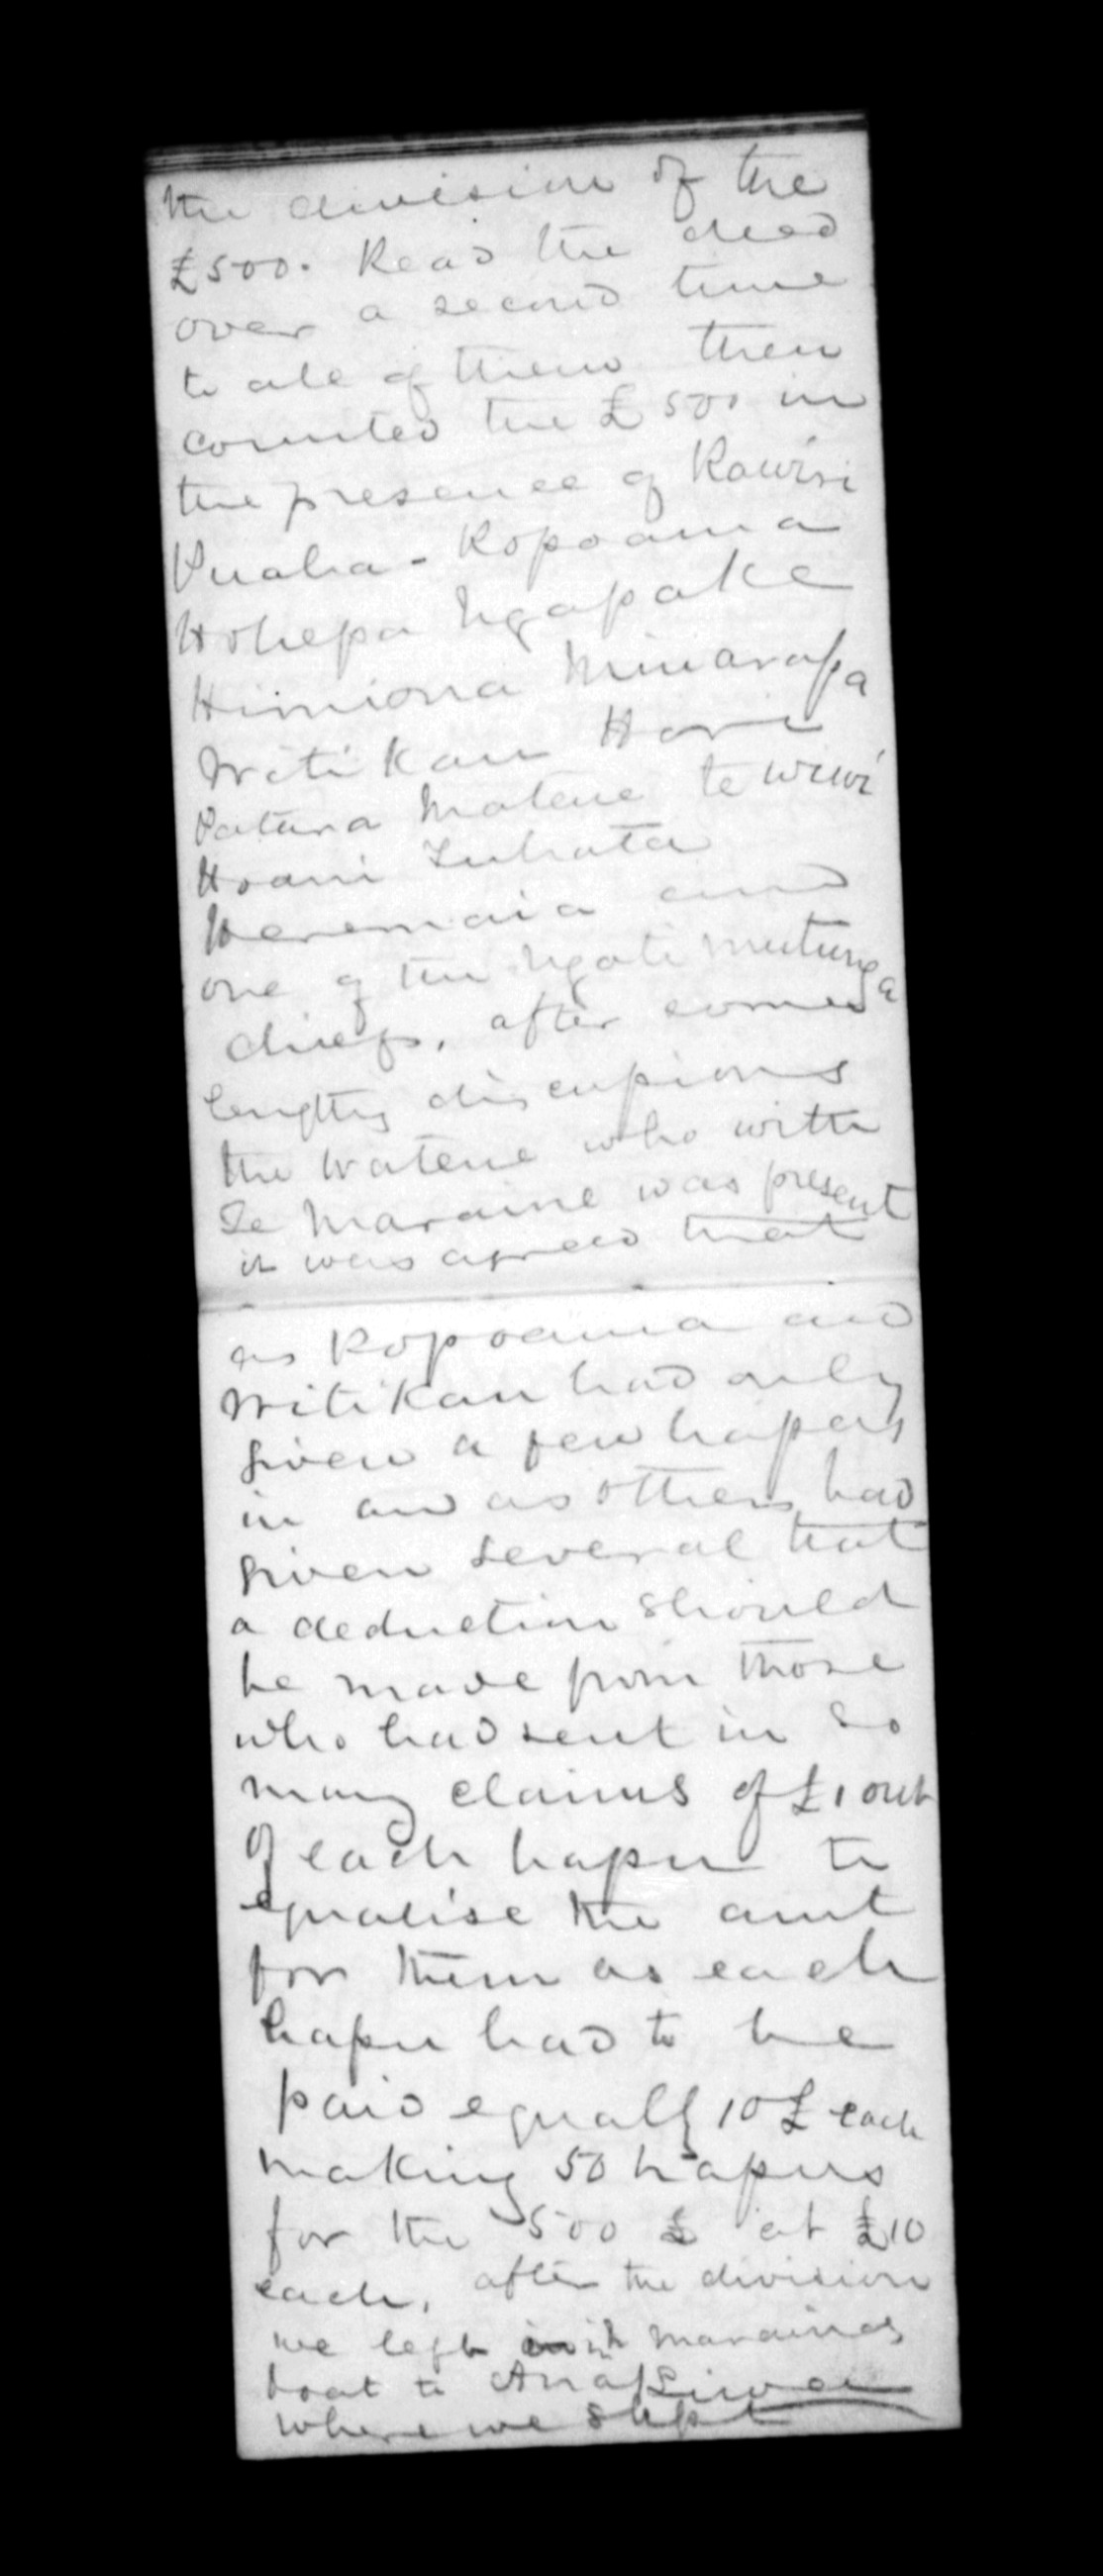 the division of the
£500. Read the deed
over a second time
to all of them then
counted the £500 in
the presence of Rawiri
Puaha - Ropoama
Hohepa Ngapake
Himiona Minarapa
Witikau Hori
Patara Matene te wiwi
Hoani Tuhata
Heremaia and
one of the Ngatimutunga
chiefs, after some
lengthy discussions
the Watene who with
Te Maraine was present
it was agreed that
as Ropoama and
Witikau had only
given a few hapus
in and as others had
given several that
a deduction should
be made from those
who had sent in so
many claims of £1 out
of each hapu to
equalise the amt
for them as each
hapu had to be
paid equally 10£ each
making 50 hapus
for the 500 £ at £10
each, after the division
we left in Maraines
boat to Anakiwa
where we slept